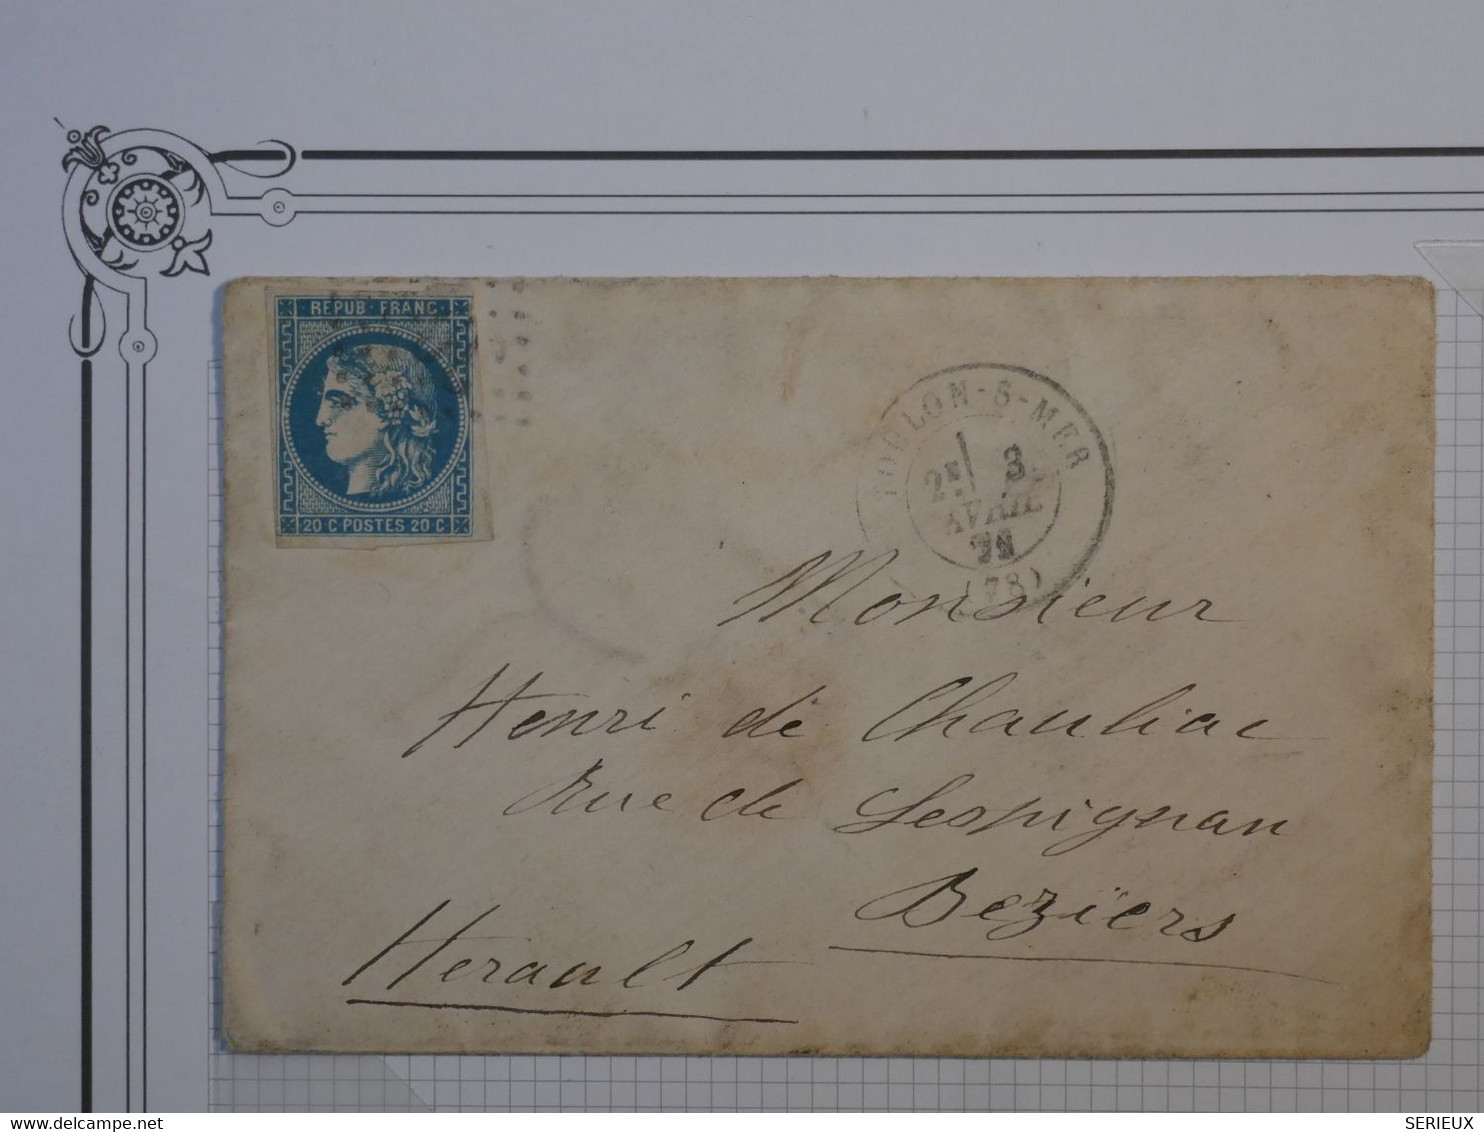 REPUB · FRANC ·
20 C POSTES 20 C
TOULON-S-MER
2E 3
AVRIL
71
(78)
Monsieur
Henri de Chauliac
Rue de Lespignan
Beziers
Herault
delcampe.net
SERIEUX